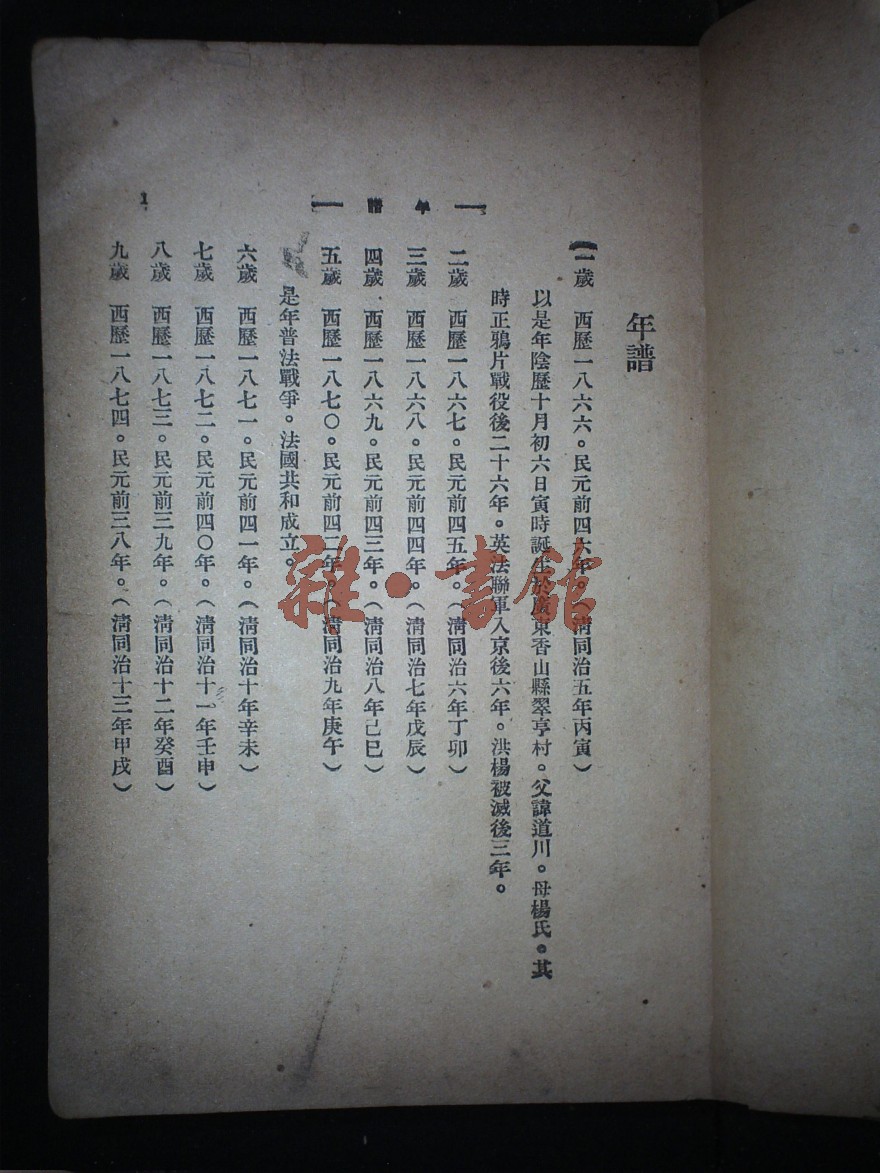 年譜
一歲　西歷一八六六。民元前四六年。（清同治五年丙寅）
以是年陰歷十月初六日寅時誕生於廣東香山縣翠亨村。父諱道川。母楊氏。其
時正鴉片戰役後二十六年。英法聯軍入京後六年。洪楊被滅後三年。
二歲　西歷一八六七。民元前四五年。（清同治六年丁卯）
三歲　西歷一八六八。民元前四四年。（清同治七年戊辰）
四歲　西歷一八六九。民元前四三年。（清同治八年己巳）
五歲　西歷一八七〇。民元前四二年。（清同治九年庚午）
是年普法戰爭。法國共和成立。
六歲　西歷一八七一。民元前四一年。（清同治十年辛未）
七歲　西歷一八七二。民元前四〇年。（清同治十一年壬申）
八歲　西歷一八七三。民元前三九年。（清同治十二年癸酉）
九歲　西歷一八七四。民元前三八年。（清同治十三年甲戌）
年譜
1
雜·書館